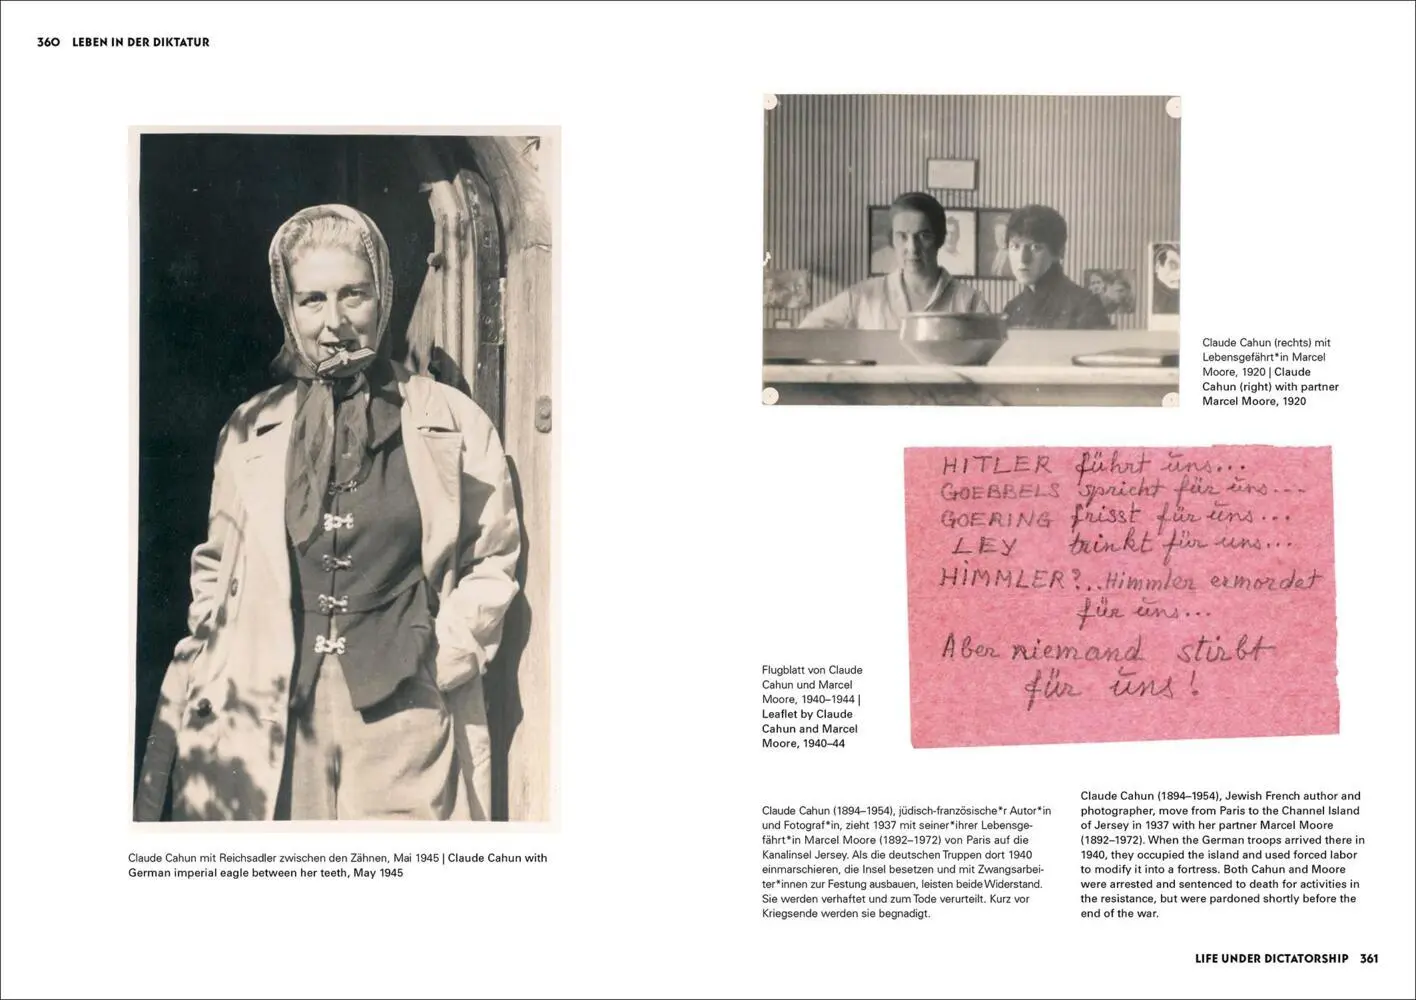 360 LEBEN IN DER DIKTATUR
Claude Cahun mit Reichsadler zwischen den Zähnen, Mai 1945 | Claude Cahun with
German imperial eagle between her teeth, May 1945
Claude Cahun (rechts) mit
Lebensgefährt*in Marcel
Moore, 1920 | Claude
Cahun (right) with partner
Marcel Moore, 1920
HITLER führt uns...
GOEBBELS spricht für uns...
GOERING frisst für uns...
LEY trinkt für uns...
HIMMLER?..Himmler ermordet
für uns...
Aber niemand stirbt
für uns!
Flugblatt von Claude
Cahun und Marcel
Moore, 1940–1944 |
Leaflet by Claude
Cahun and Marcel
Moore, 1940–44
Claude Cahun (1894–1954), jüdisch-französische*r Autor*in
und Fotograf*in, zieht 1937 mit seiner*ihrer Lebensge-
fährt*in Marcel Moore (1892–1972) von Paris auf die
Kanalinsel Jersey. Als die deutschen Truppen dort 1940
einmarschieren, die Insel besetzen und mit Zwangsarbei-
ter*innen zur Festung ausbauen, leisten beide Widerstand.
Sie werden verhaftet und zum Tode verurteilt. Kurz vor
Kriegsende werden sie begnadigt.
Claude Cahun (1894–1954), Jewish French author and
photographer, move from Paris to the Channel Island
of Jersey in 1937 with her partner Marcel Moore
(1892–1972). When the German troops arrived there in
1940, they occupied the island and used forced labor
to modify it into a fortress. Both Cahun and Moore
were arrested and sentenced to death for activities in
the resistance, but were pardoned shortly before the
end of the war.
LIFE UNDER DICTATORSHIP 361